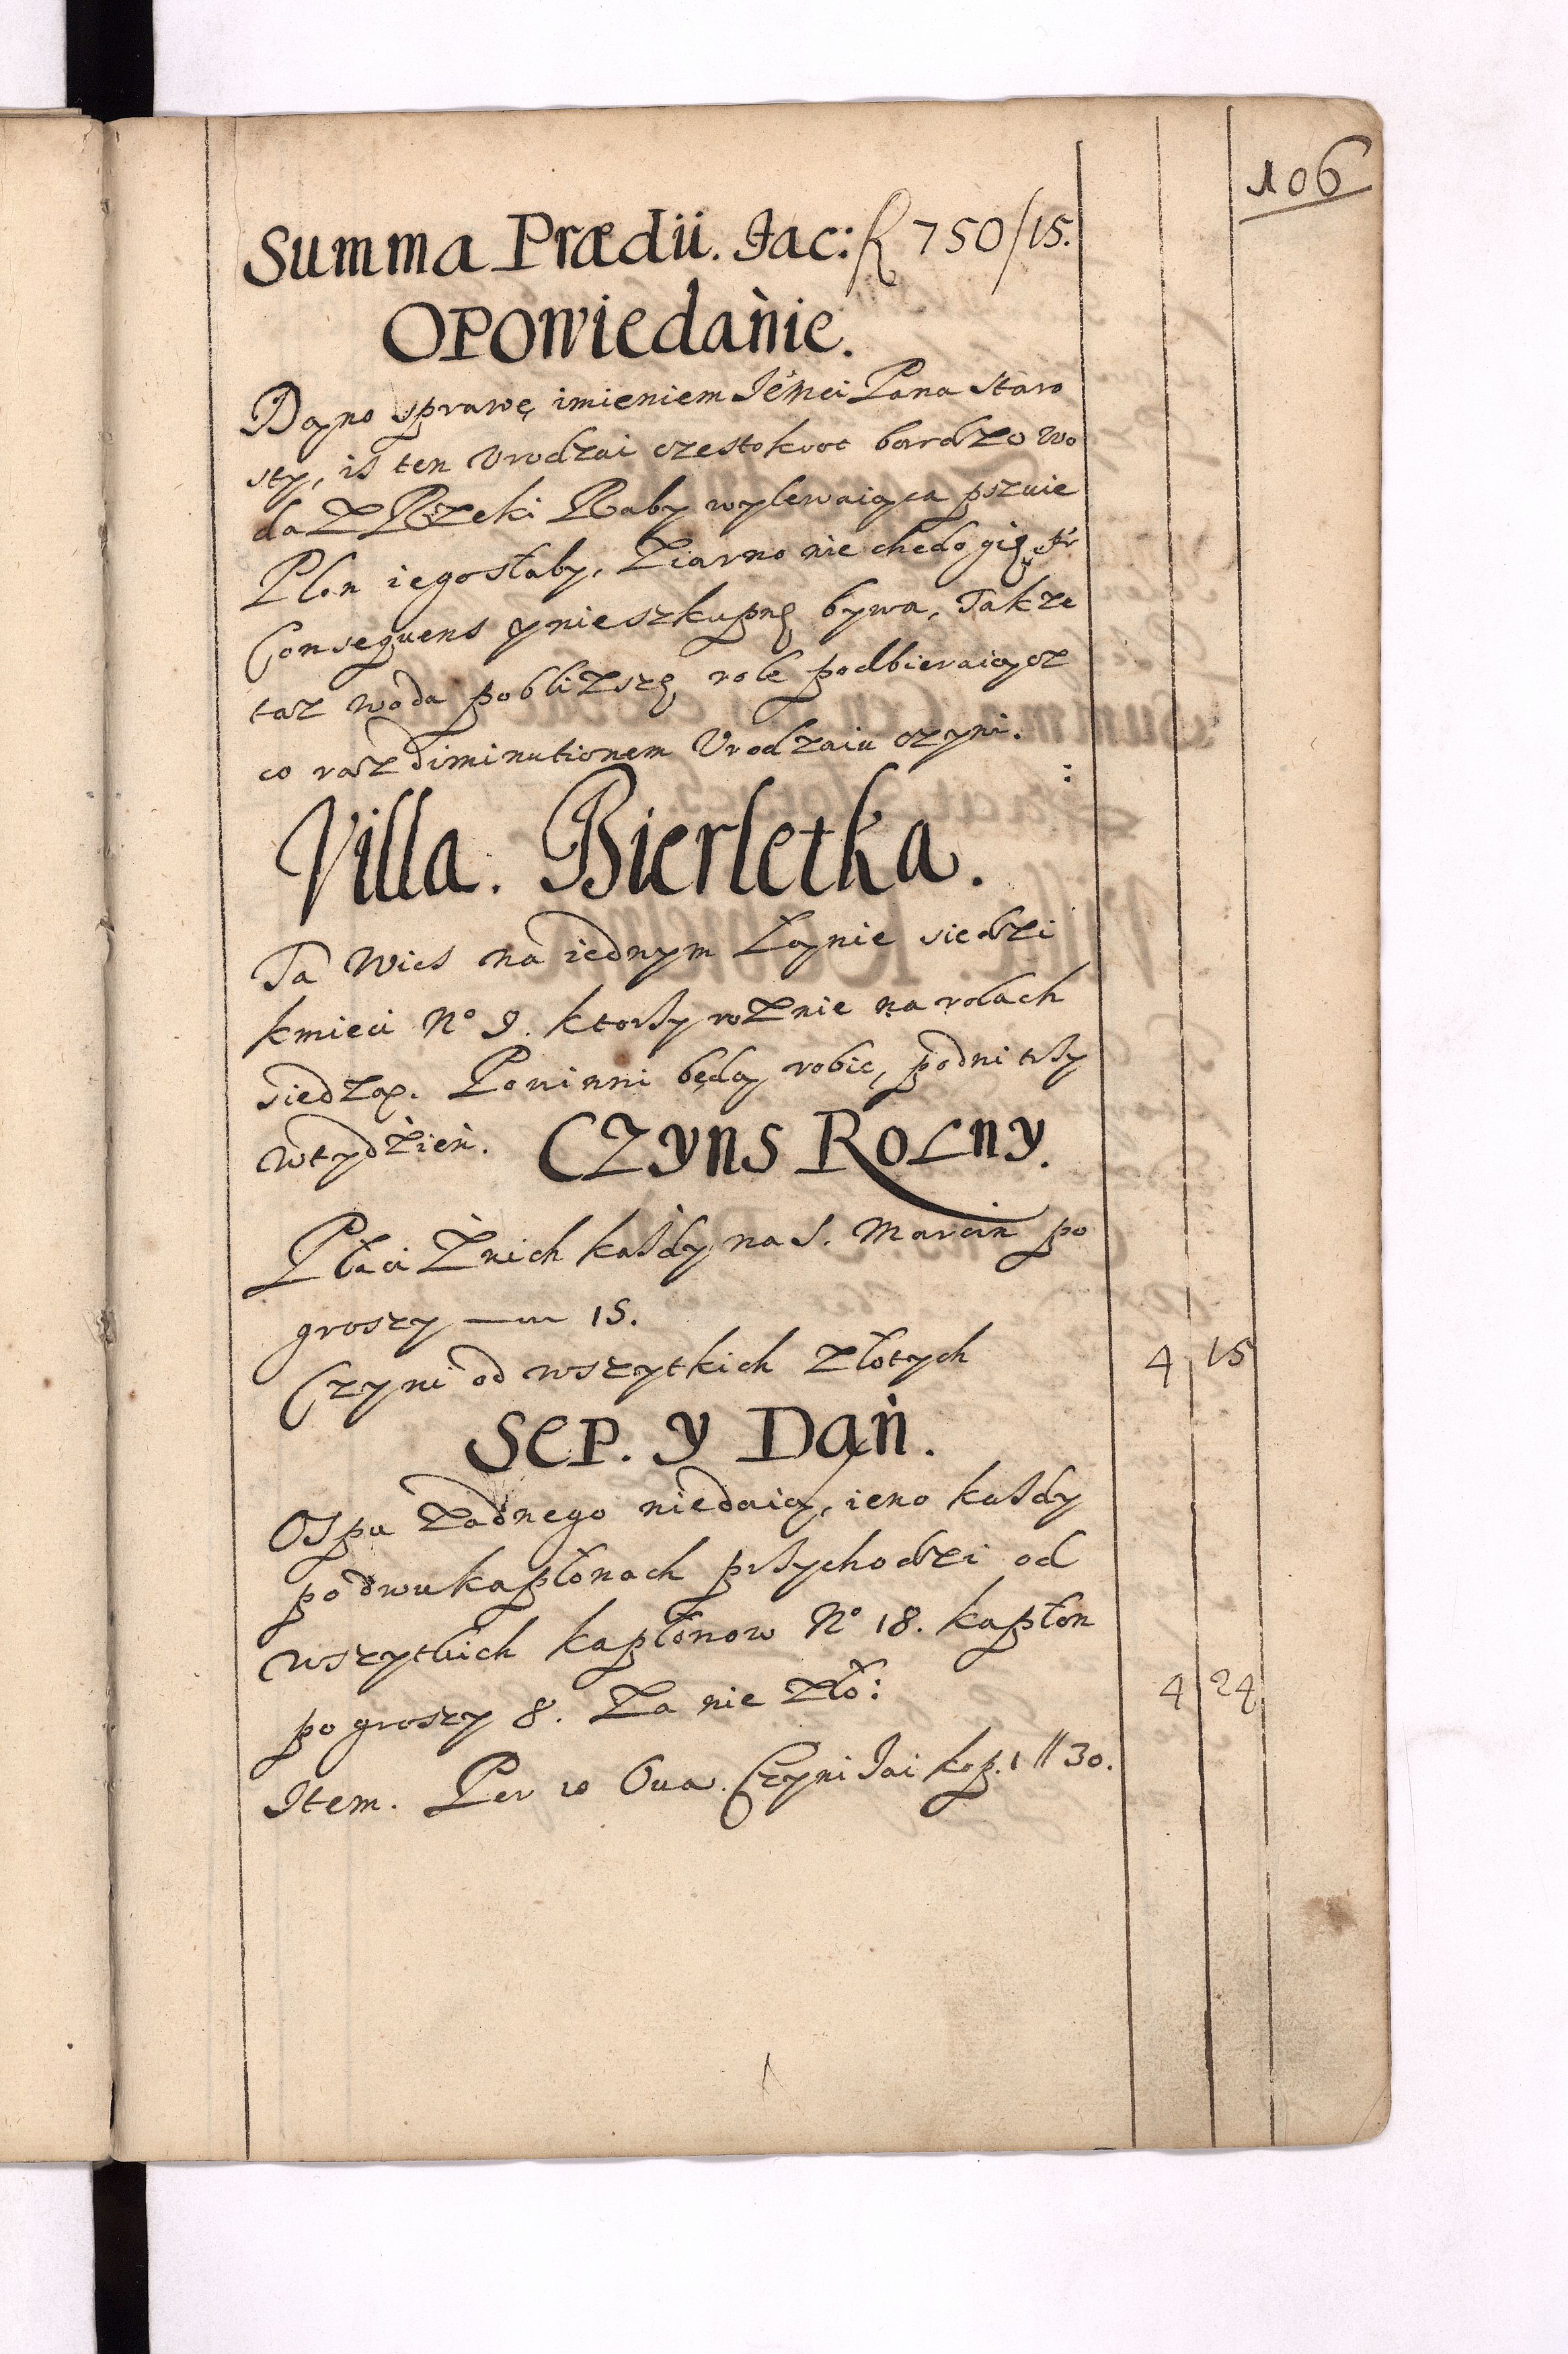 106
Summa Prædii. Fac: fl 750/15.
Opowiedanie.
Dayno sprawę imieniem Jeͤmci Pana Staro
sty, is ten Vrodzai czestokroc bardzo wo
da z Rzeki Raby wylewaiąca pszuie
Plon iego słaby, Ziarno nie chedogię, &
Consequens y nieszkupnę bywa, Takze
taz woda pobliższę role podbieraiącz
co raz diminutionem Vrodzaiu czyni.
Villa. Bierletka.
Ta Wies na iednym Łanie siedzi
kmieci No 9. ktorzy roznie na rolach
siedzą. Powinni będą robic, po dni trzy
w tydzień. Czyns Rolny.
Płaci z nich kazdy na S. Marcin po
groszy 15.
Czyni od wszytkich złotych 4 15
Sep. y Dań.
Ospu zadnego niedaią, ieno kazdy
po dwu kapłonach przychodzi od
wszytkich kapłonow No 18. kapłon
po groszy 8. Za nie zło: 4 24
Item. Per 10 Oua. Czyni Jai kop. 1 // 30.